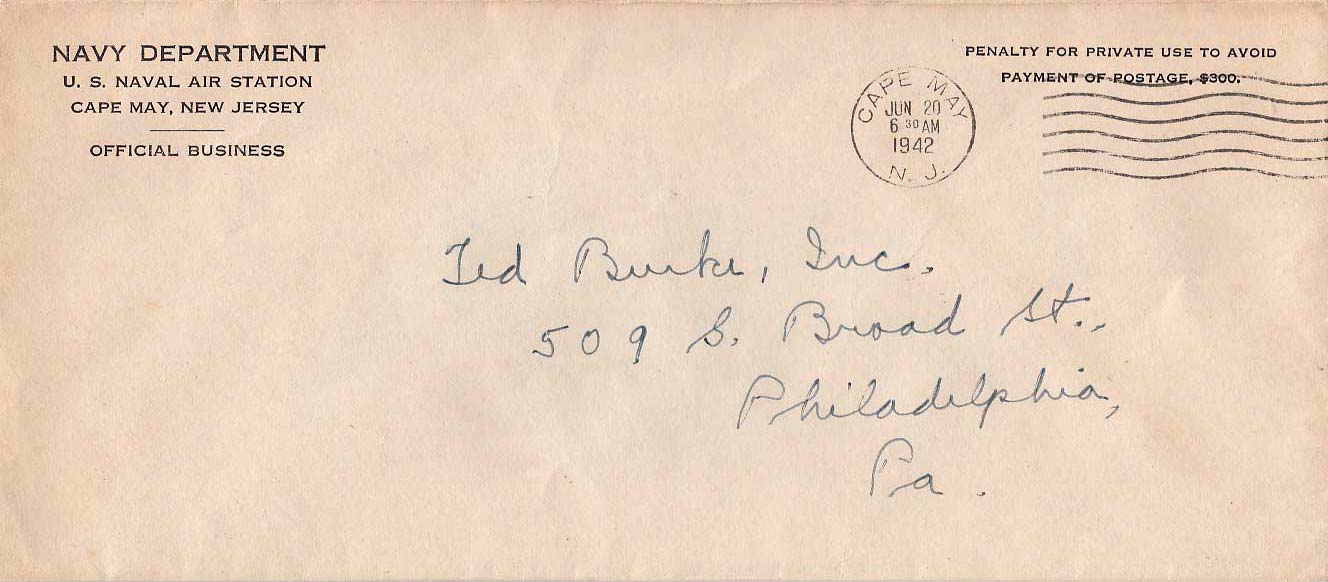 NAVY DEPARTMENT
U. S. NAVAL AIR STATION
CAPE MAY, NEW JERSEY
OFFICIAL BUSINESS
PENALTY FOR PRIVATE USE TO AVOID
PAYMENT OF POSTAGE, $300.
CAPE MAY
JUN 20
6 30 AM
1942
N. J.
Ted Burke, Inc.
509 S. Broad St.,
Philadelphia,
Pa.